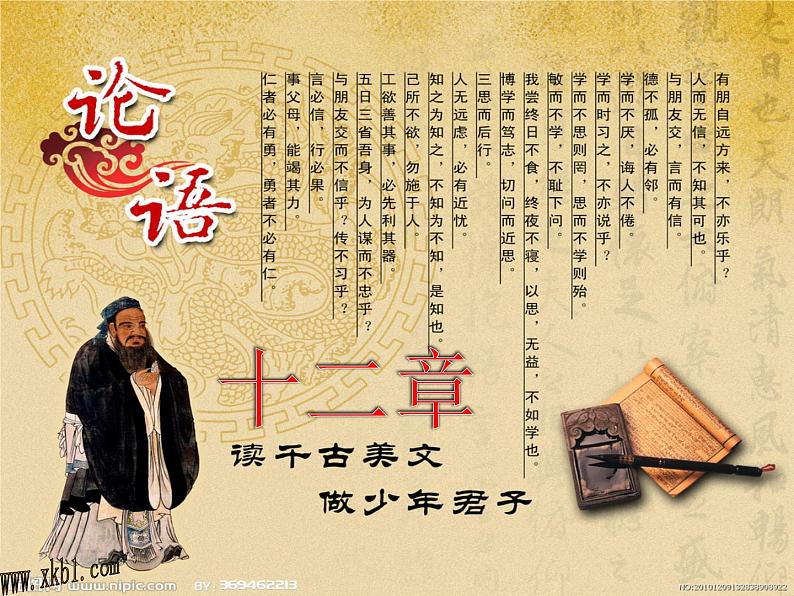 论语
有朋自远方来，不亦乐乎？
人而无信，不知其可也。
与朋友交，言而有信。
德不孤，必有邻。
学而不厌，诲人不倦。
学而时习之，不亦说乎？
学而不思则罔，思而不学则殆。
敏而不学，不耻下问。
我尝终日不食，终夜不寝，以思，无益，不如学也。
博学而笃志，切问而近思。
三思而后行。
人无远虑，必有近忧。
知之为知之，不知为不知，是知也。
己所不欲，勿施于人。
工欲善其事，必先利其器。
五日三省吾身，为人谋而不忠乎？
与朋友交而不信乎？传不习乎？
言必信，行必果。
事父母，能竭其力。
仁者必有勇，勇者不必有仁。
十二章
读千古美文
做少年君子
www.xkb1.com
www.nipic.com BY: 369462213
NO:20101209132838908922